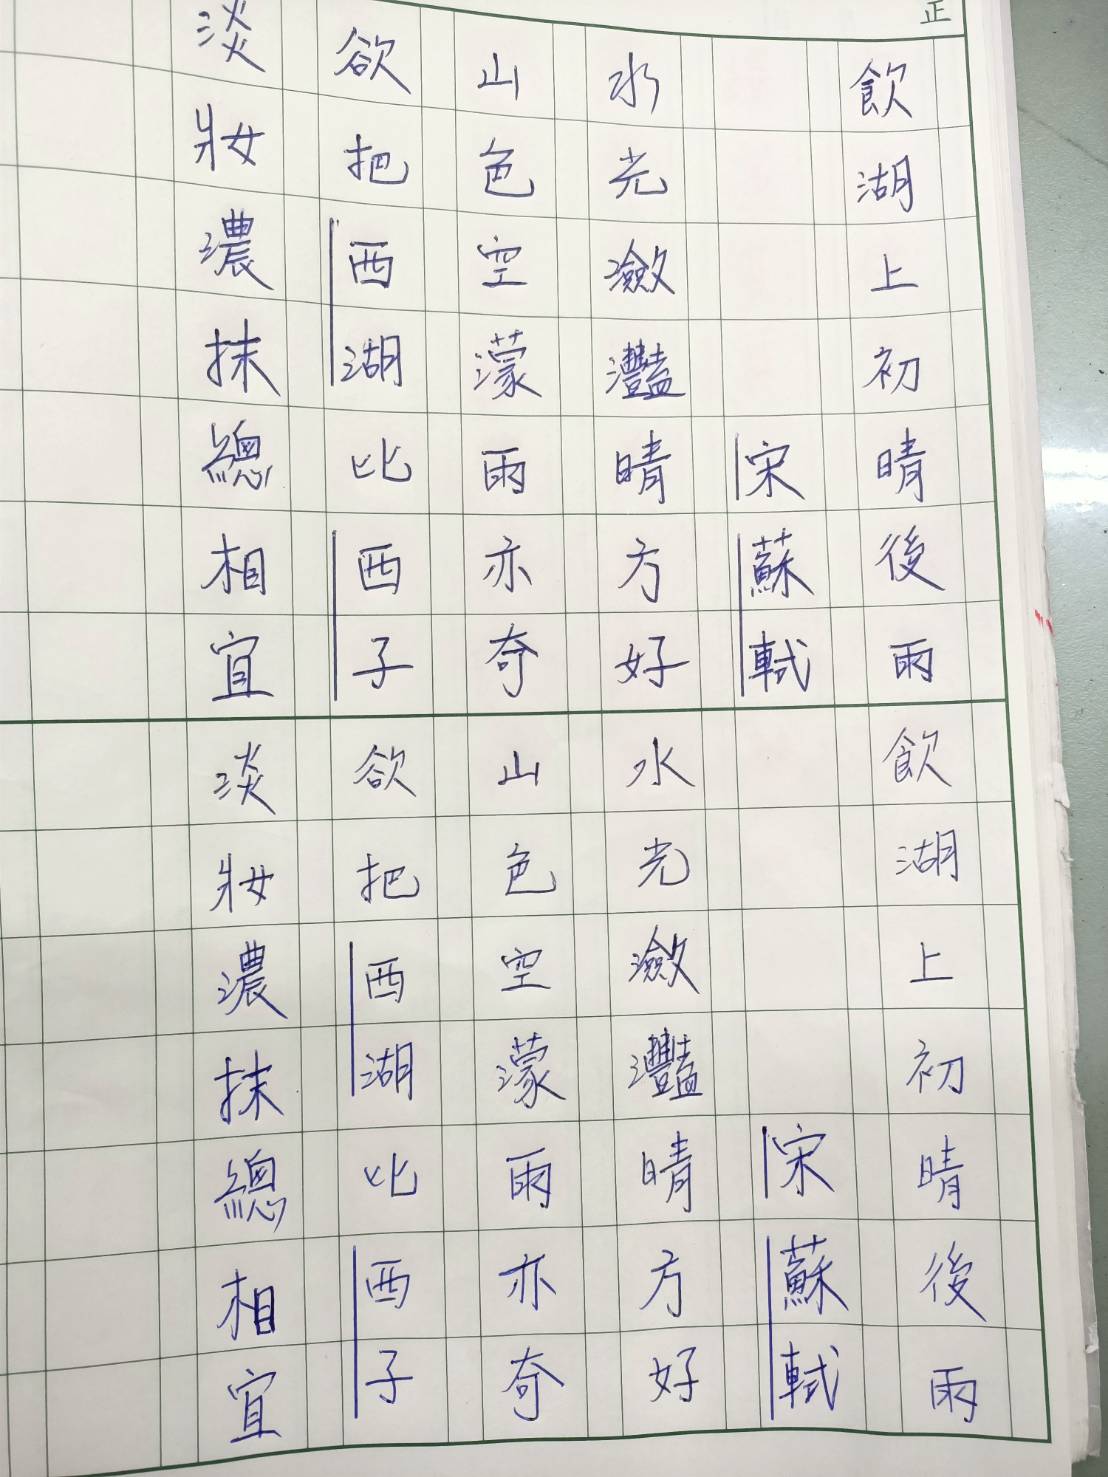 正
飲湖上初晴後雨
宋蘇軾
水光瀲灩晴方好
山色空濛雨亦奇
欲把西湖比西子
淡妝濃抹總相宜
飲湖上初晴後雨
宋蘇軾
水光瀲灩晴方好
山色空濛雨亦奇
欲把西湖比西子
淡妝濃抹總相宜